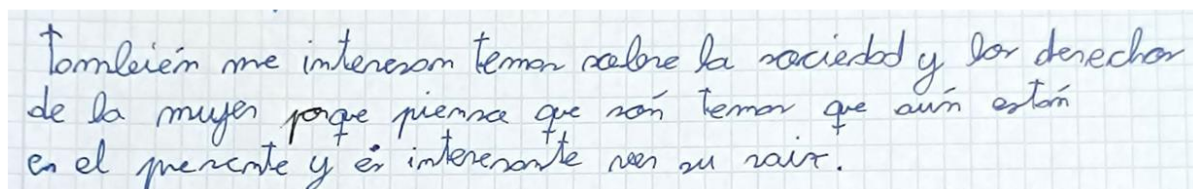 También me interesan temas sobre la sociedad y los derechos
de la mujer porqe piensso qe són temas qe aún están
en el presente y és interesante ver su raix.